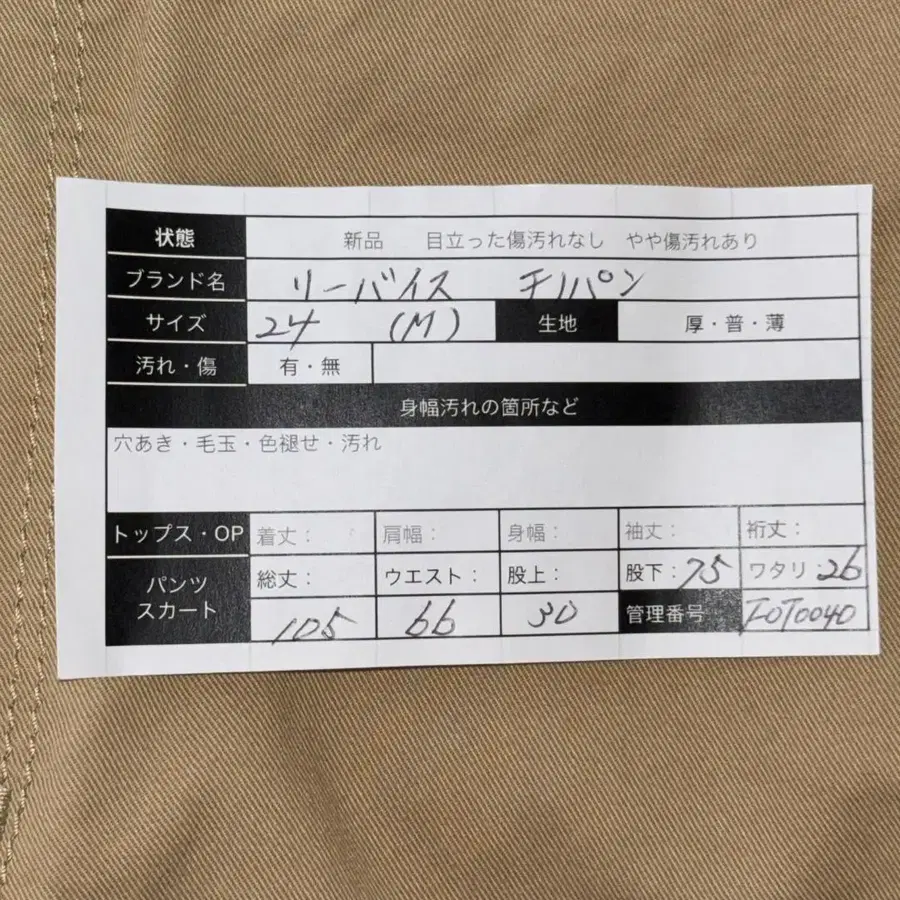 状態 新品 目立った傷汚れなし やや傷汚れあり
ブランド名 リーバイス チノパン
サイズ 24 (M) 生地 厚・普・薄
汚れ・傷 有・無
身幅汚れの箇所など
穴あき・毛玉・色褪せ・汚れ
トップス・OP 着丈: 肩幅: 身幅: 袖丈: 裄丈:
パンツ 総丈: ウエスト: 股上: 股下:75 ワタリ:26
スカート 105 66 30 管理番号